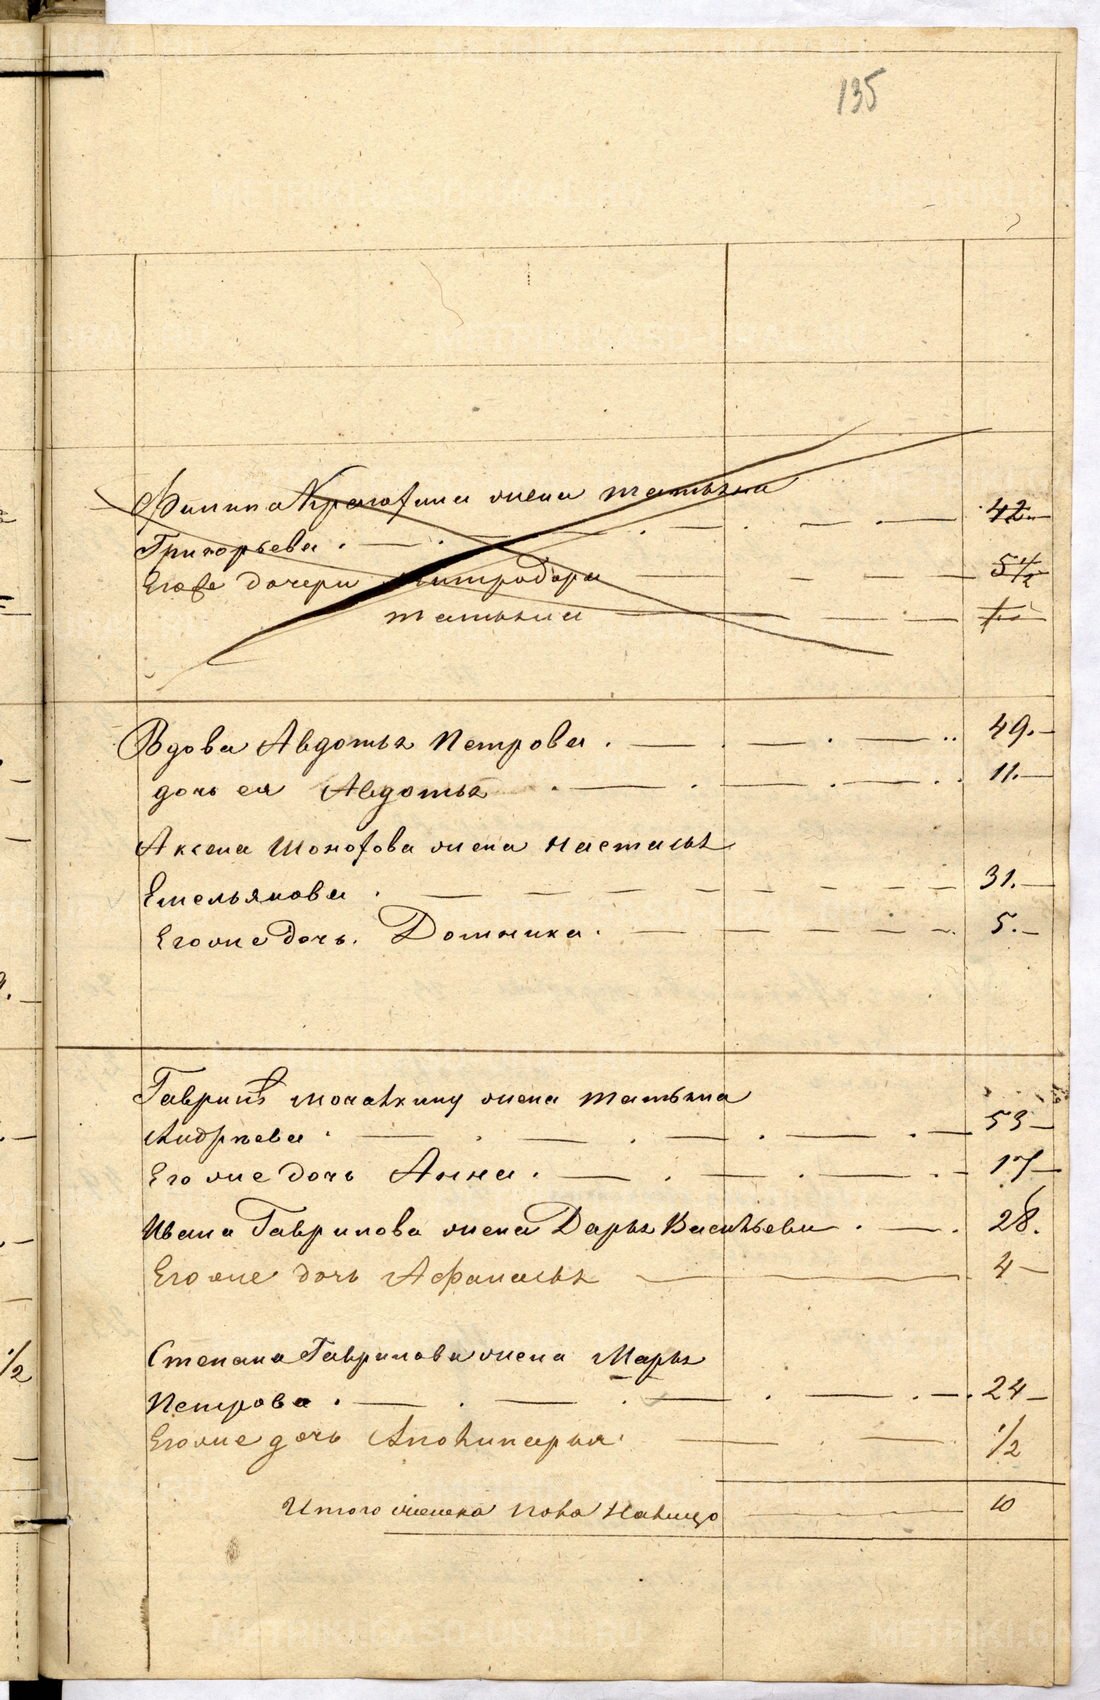 135
Филипа Кронофина жена татьяна 42.
Григорьева
Егоже дочери митродора 5 1/2
татьяна
Вдова Авдотья Петрова 49.
дочь ея Авдотья 11.
Аксена жена настасья
Емельянова 31.
Егоже дочь. Домника 5.
Гаврилъ жена татьяна
Андрѣева 53
Егоже дочь Анна 17
Ивана Гаврилова жена Дарья Васильева 28.
Егоже дочь Афанасья 4
Степана Гаврилова жена Марья
Петрова 24
Егоже дочь Аполинарья 1/2
Итого женска пола Налицо 10